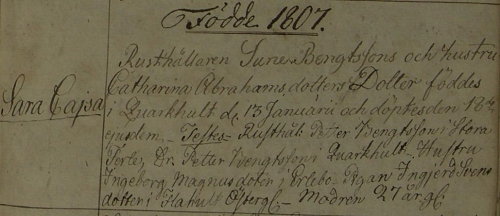 Födde 1807.
Rusthållaren Sune Bengtssons och hustru
Sara Cajsa
Catharina Abrahams dotters Dotter föddes
i Quarkhult d. 13 Januarii och döptes den 18de
ejusdem. Testes Rusthål: Petter Bengtsson i Stora
Dr. Petter Bengtsson i Quarkhult. Hustru
Ingeborg Magnusdoter i Erlebo Pigan Ingjerd Svens
dotter i Östergl. Modren 27 år gl.